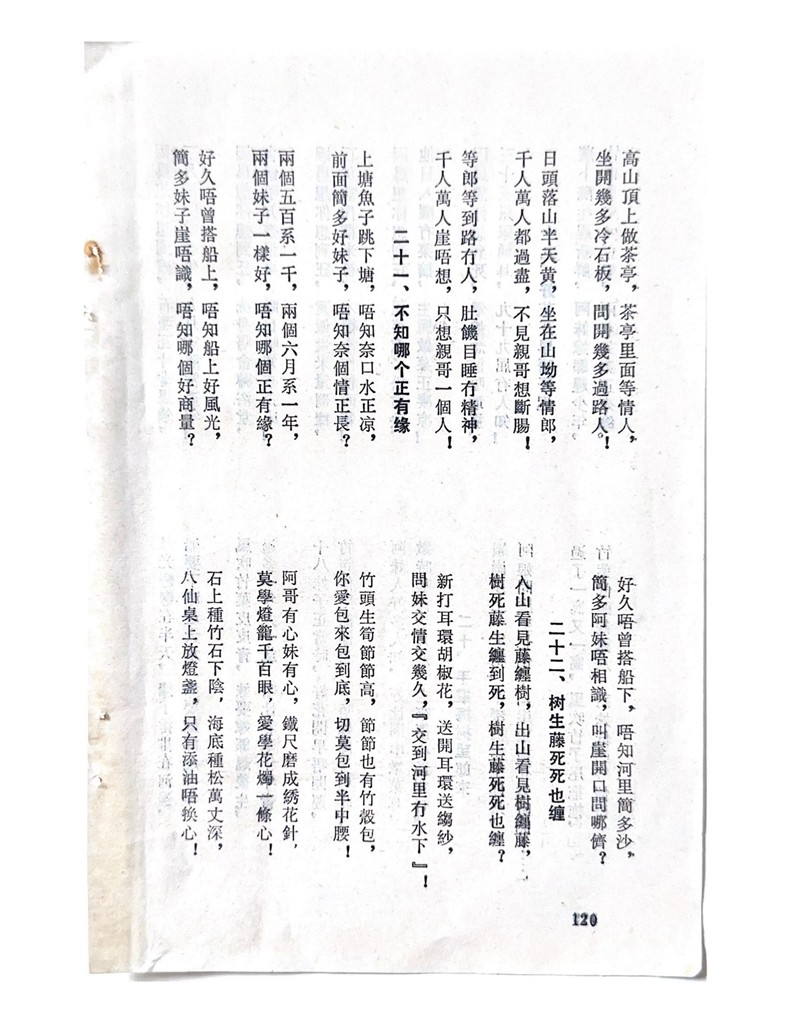 高山頂上做茶亭，茶亭里面等情人，
坐開幾多冷石板，問開幾多過路人！
日頭落山半天黄，坐在山坳等情郎，
千人萬人都過盡，不見親哥想斷腸！
等郎等到路冇人，肚饑目睡冇精神，
千人萬人崖唔想，只想親哥一個人！
二十一、不知哪个正有缘
上塘魚子跳下塘，唔知奈口水正凉，
前面簡多好妹子，唔知奈個情正長？
兩個五百系一千，兩個六月系一年，
兩個妹子一樣好，唔知哪個正有緣？
好久唔曾搭船上，唔知船上好風光，
簡多妹子崖唔識，唔知哪個好商量？
好久唔曾搭船下，唔知河里簡多沙，
簡多阿妹唔相識，叫崖開口問哪儕？
二十二、树生藤死死也缠
入山看見藤纏樹，出山看見樹纏藤，
樹死藤生纏到死，樹生藤死死也纏？
新打耳環胡椒花，送開耳環送縐紗，
問妹交情交幾久，『交到河里冇水下』！
竹頭生筍節節高，節節也有竹殼包，
你愛包來包到底，切莫包到半中腰！
阿哥有心妹有心，鐵尺磨成綉花針，
莫學燈籠千百眼，愛學花燭一條心！
石上種竹石下陰，海底種松萬丈深，
八仙桌上放燈盞，只有添油唔换心！
120